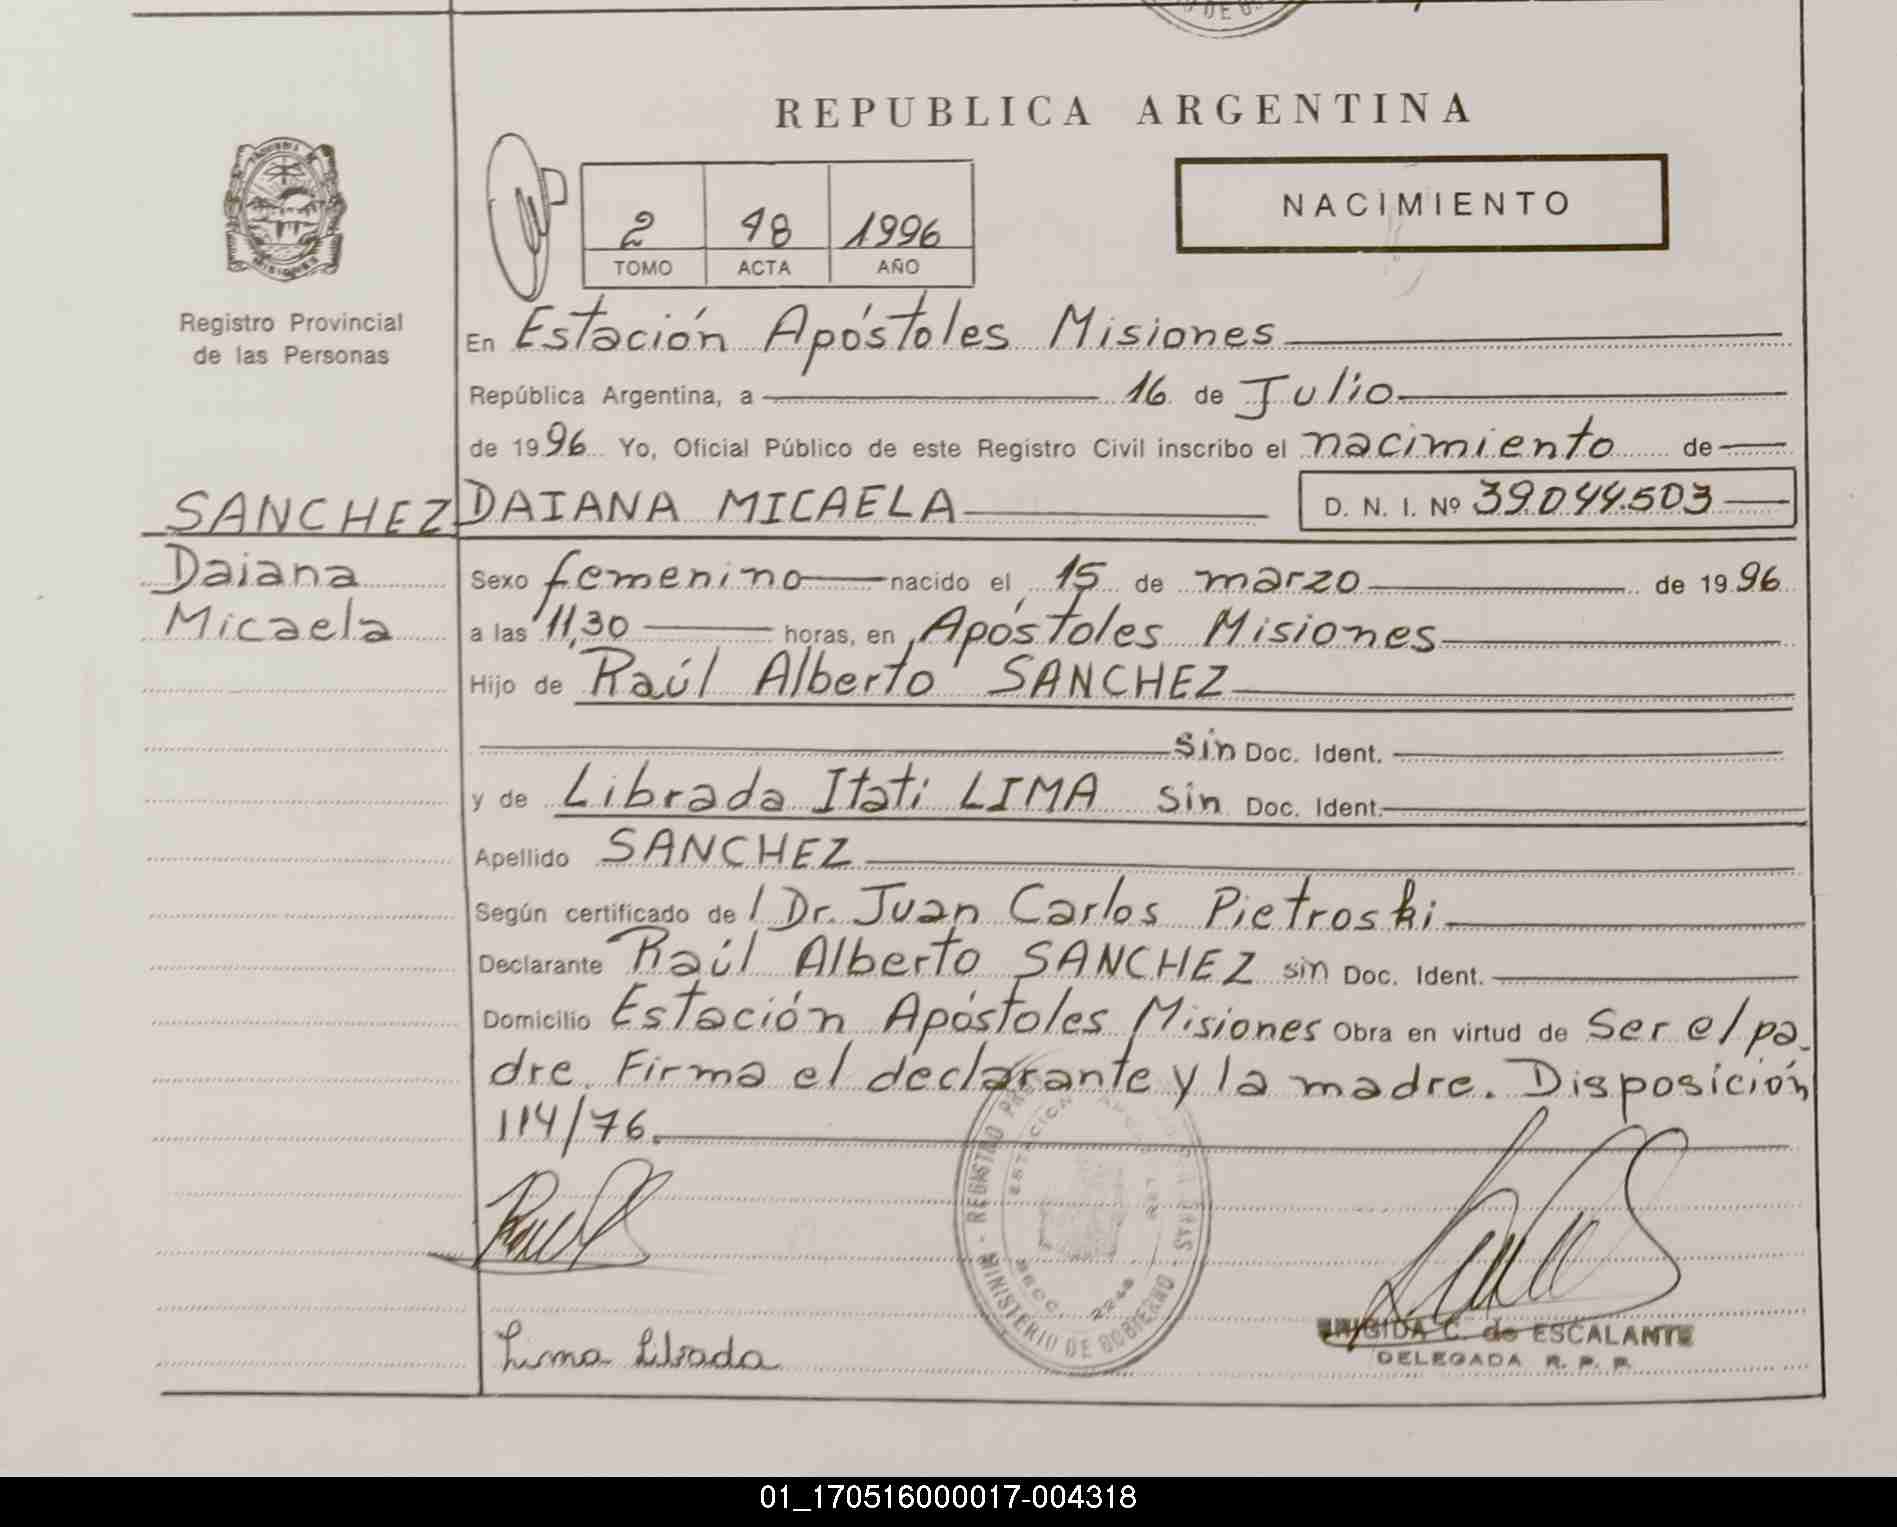 REPUBLICA ARGENTINA
NACIMIENTO
2 48 1996
TOMO ACTA AÑO
Registro Provincial
de las Personas
En Estación Apóstoles Misiones
República Argentina, a 16 de Julio
de 1996 Yo, Oficial Público de este Registro Civil inscribo el nacimiento de
SANCHEZ DAIANA MICAELA D. N. I. Nº 39.044.503
Daiana
Micaela
Sexo femenino nacido el 15 de marzo de 1996
a las 11,30 horas, en Apóstoles Misiones
Hijo de Raúl Alberto SANCHEZ
sin Doc. Ident.
y de Librada Itati LIMA sin Doc. Ident.
Apellido SANCHEZ
Según certificado del Dr. Juan Carlos Pietroski
Declarante Raúl Alberto SANCHEZ sin Doc. Ident.
Domicilio Estación Apóstoles Misiones Obra en virtud de Ser el pa-
dre. Firma el declarante y la madre. Disposición
114/76.
REGISTRO
MINISTERIO DE GOBIERNO
Lima Librada
BRIGIDA C. de ESCALANTE
DELEGADA R. P. P.
01_170516000017-004318